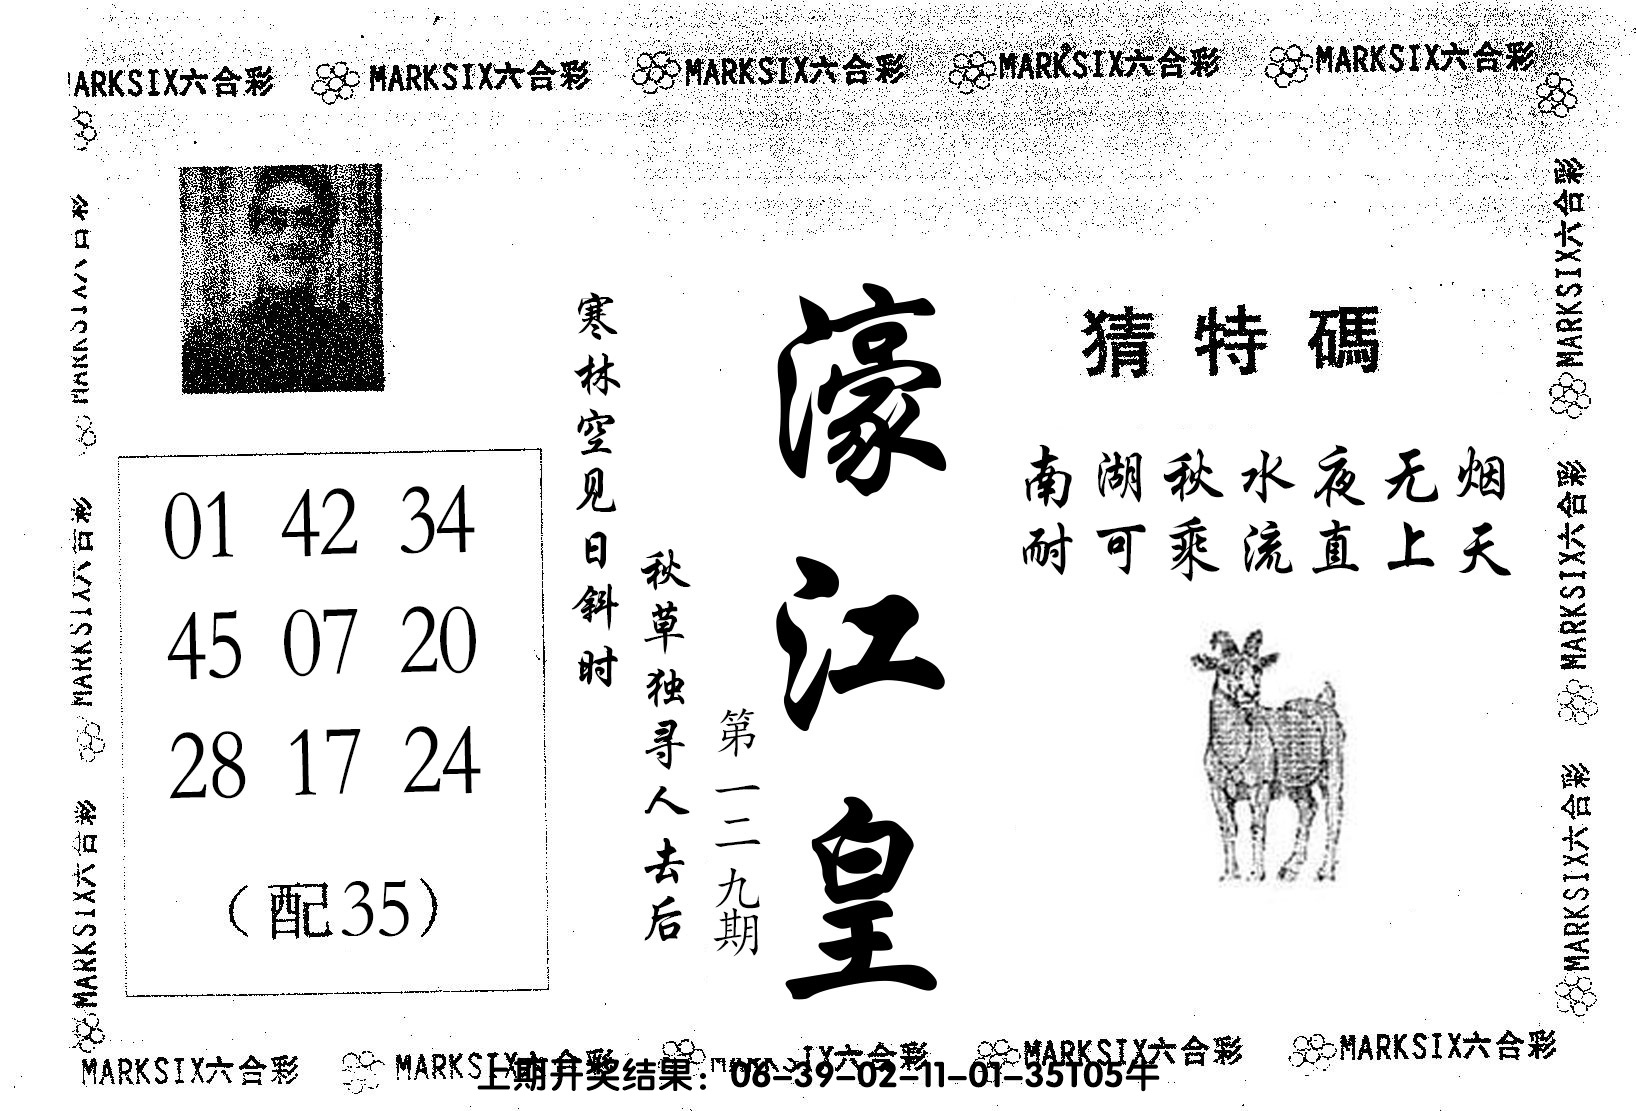 MARKSIX六合彩 MARKSIX六合彩 MARKSIX六合彩 MARKSIX六合彩 MARKSIX六合彩
猜特碼
南湖秋水夜无烟
耐可乘流直上天
濠江皇
第一二九期
秋草独寻人去后
寒林空见日斜时
01 42 34
45 07 20
28 17 24
（配35）
MARKSIX六合彩
MARKSIX六合彩
MARKSIX六合彩
MARKSIX六合彩
MARKSIX六合彩
MARKSIX六合彩
MARKSIX六合彩 MARKSIX六合彩 IX六合彩 MARKSIX六合彩 MARKSIX六合彩
上期开奖结果：06-39-02-11-01-35T05牛